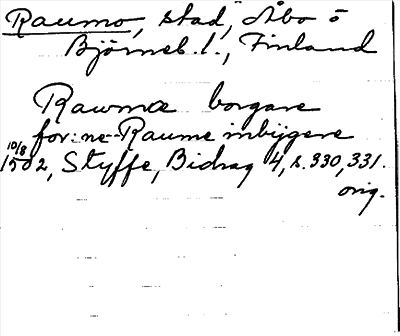 Raumo, stad, Åbo o
Björneb. l., Finland
Rawmæ borgare
for:ne Raume inbygere
10/8 1502, Styffe, Bidrag 4, s. 330, 331.
orig.